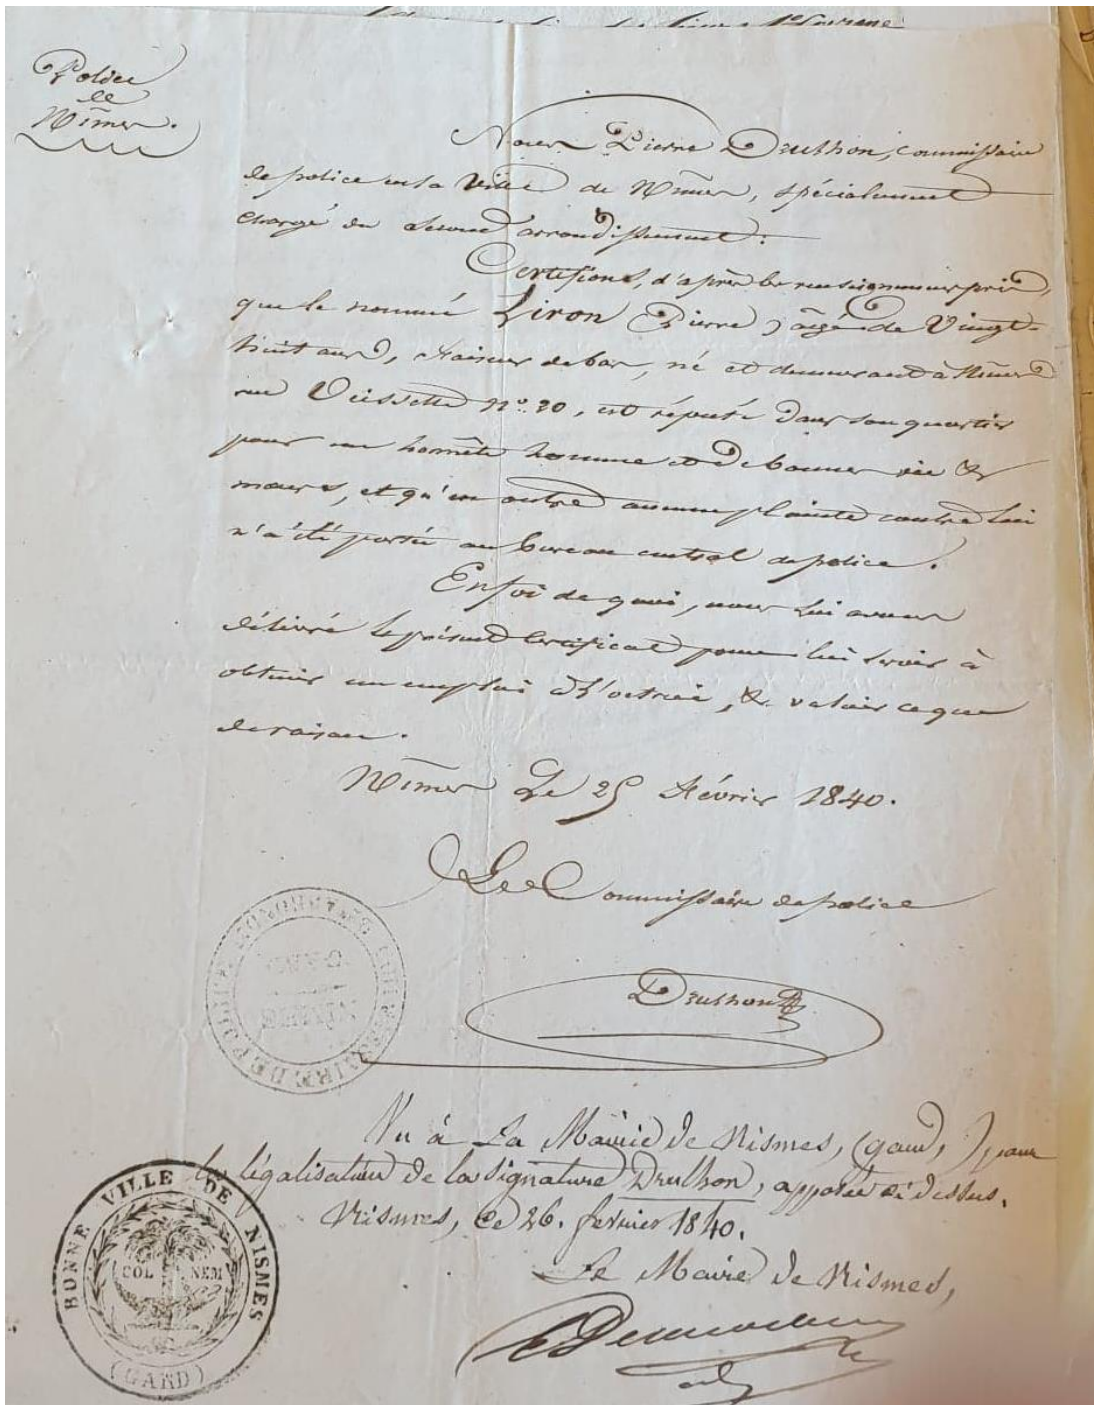 Police
de
Nîmes.
Nous Pierre Druthon, commissaire
de police en la Ville de Nîmes, spécialement
chargé du second arrondissement :
Certifions, d'après les renseignemens pris,
que le nommé Liron Pierre, âgé de Vingt-
huit ans, faiseur de bas, né et demeurant à Nîmes
rue Vaissette n.° 20, est réputé dans son quartier
pour un honnête homme et de bonnes vie &
mœurs, et qu'en outre aucune plainte contre lui
n'a été portée au bureau central de police.
En foi de quoi, nous lui avons
délivré le présent certificat pour lui servir à
obtenir un emploi d'octroi, & valoir ce que
de raison.
Nîmes Le 25 février 1840.
Le Commissaire de police
Druthon
COMMISSAIRE DE POLICE
NISMES
Vu à La Mairie de Nismes, (gard,) pour
la légalisation de la signature Drulhon, apposée ci dessus.
Nismes, Ce 26. fevrier 1840.
Le Maire de Nismes,
BONNE VILLE DE NISMES
COL NEM
(GARD)